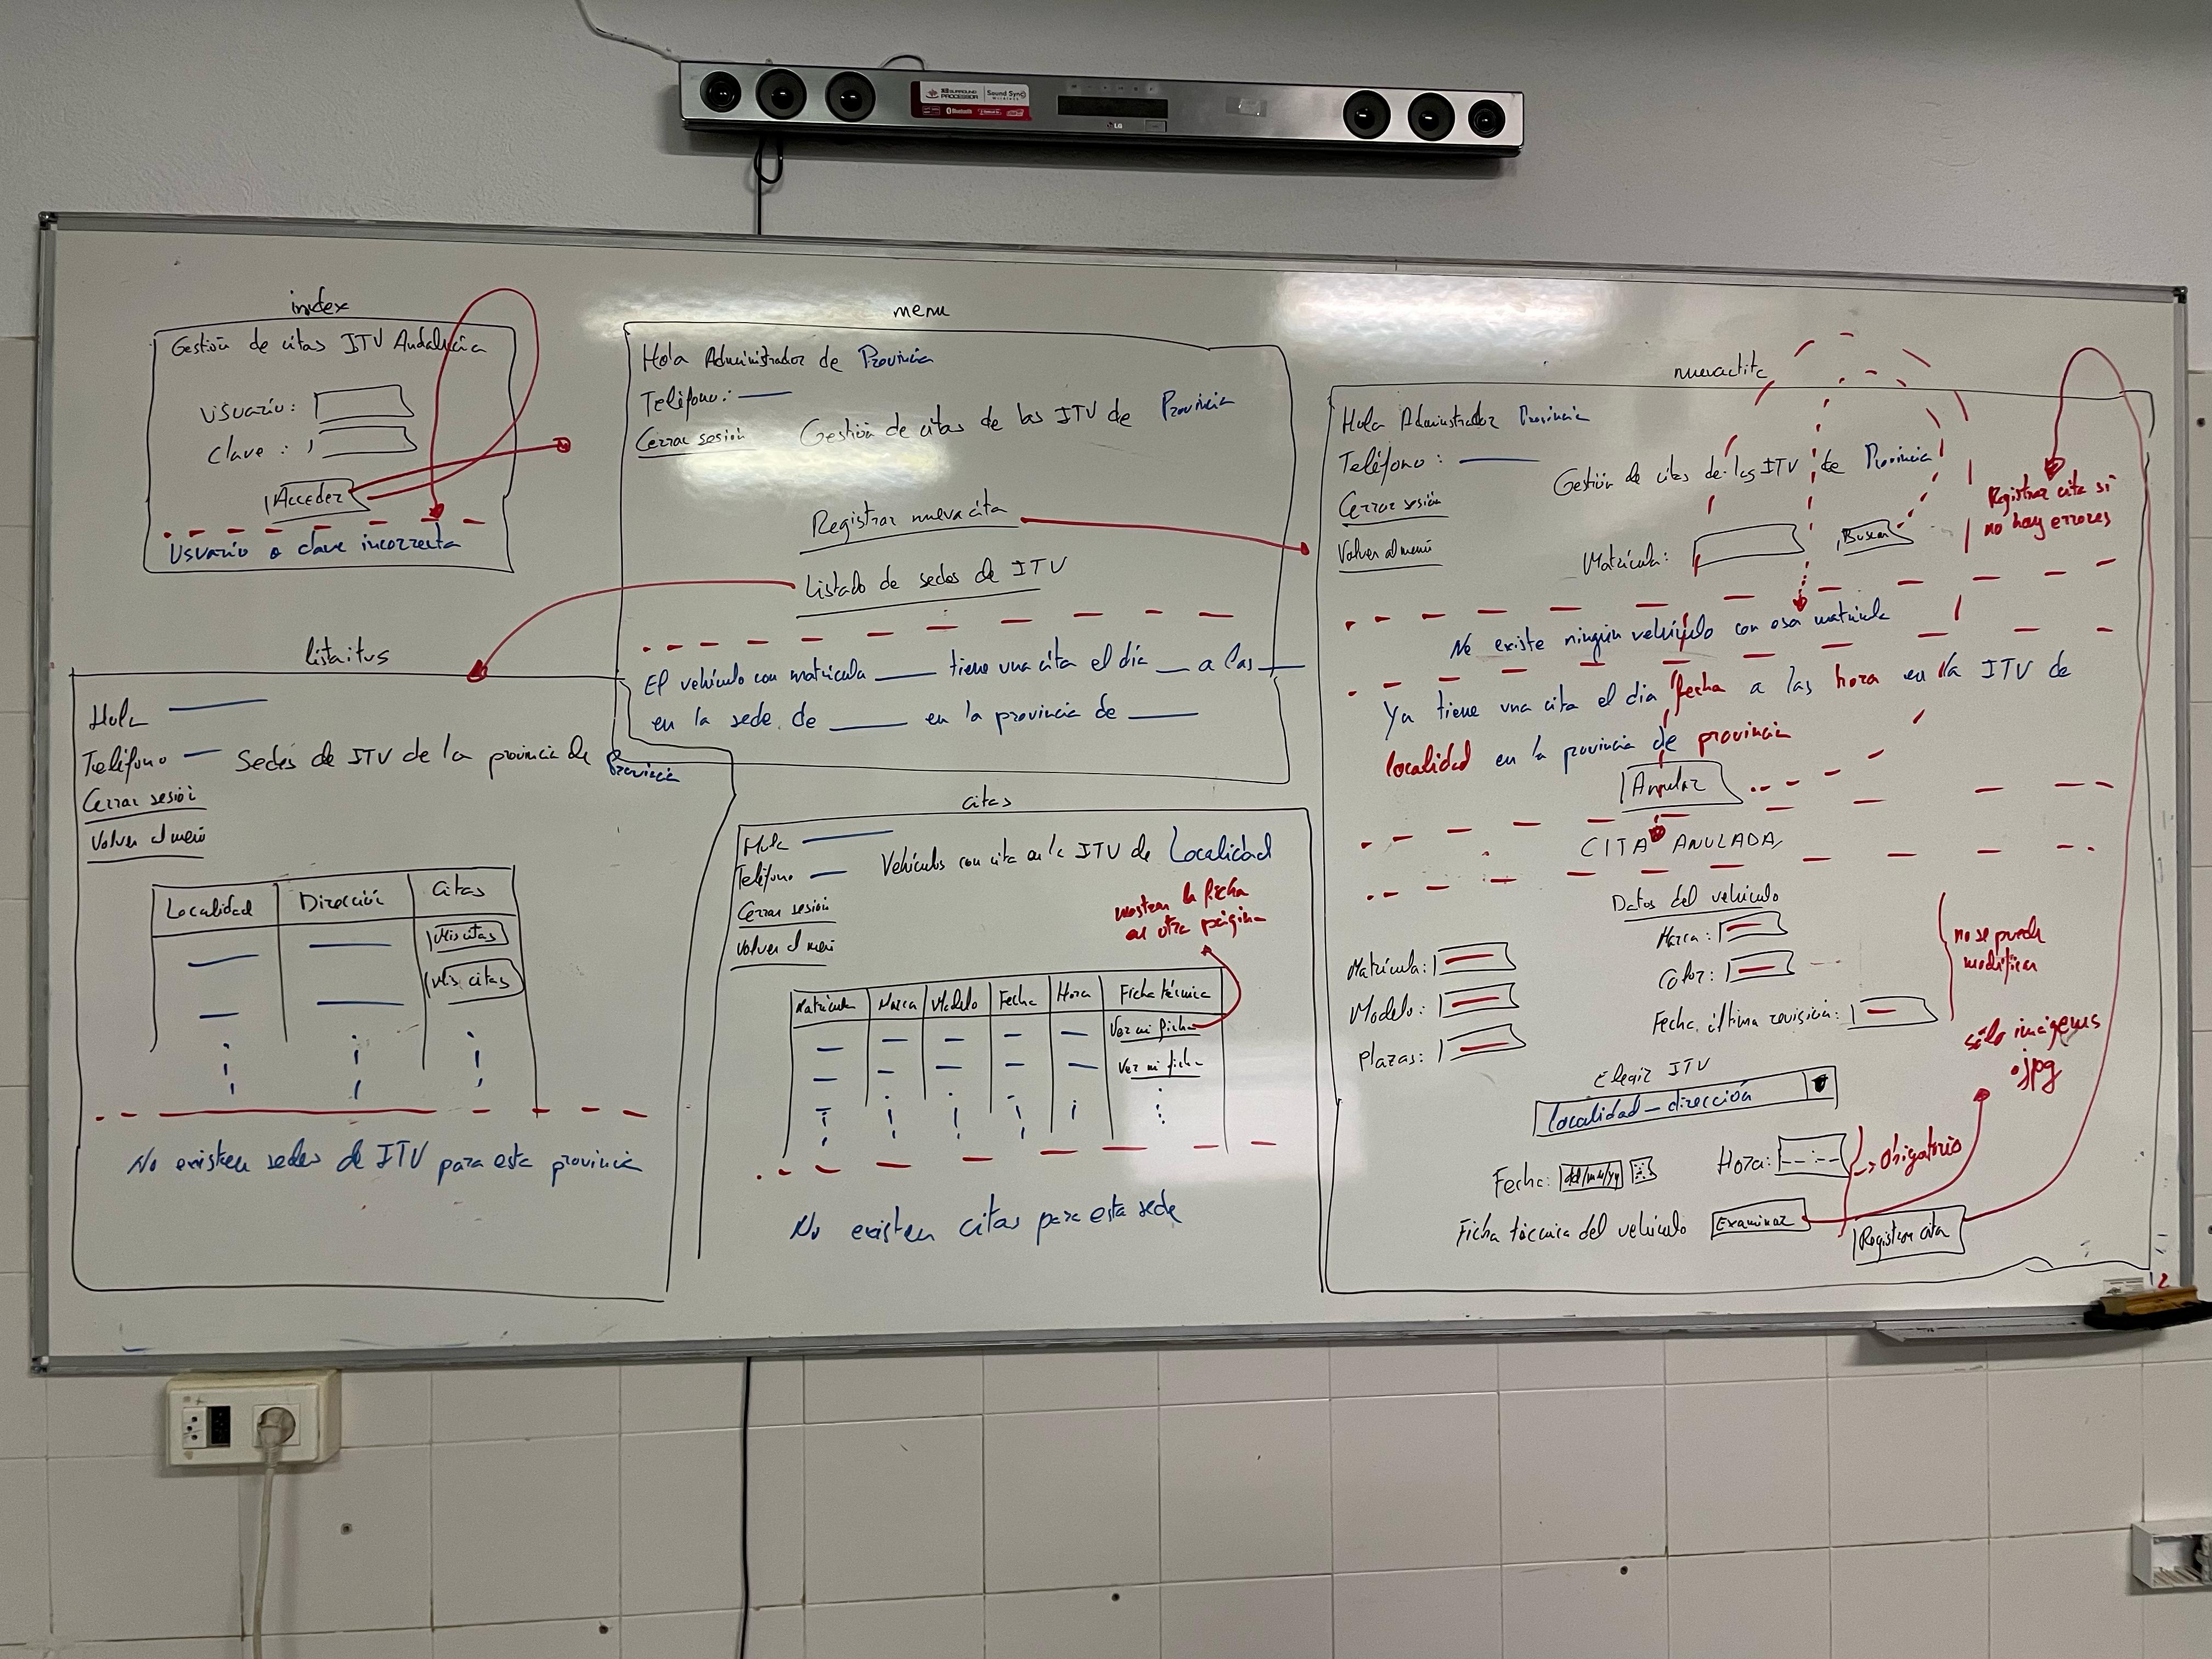 SURROUND PROCESSOR
Sound Sync
WIRELESS
Bluetooth
LG
index
Gestión de citas ITV Andalucía
Usuario:
Clave:
Acceder
Usuario o clave incorrecta
menu
Hola Administrador de Provincia
Teléfono:
Cerrar sesión
Gestión de citas de las ITV de Provincia
Registrar nueva cita
Listado de sedes de ITV
El vehículo con matrícula ____ tiene una cita el día __ a las ___
en la sede de ____ en la provincia de ____
listaitvs
Hola
Teléfono
Sedes de ITV de la provincia de Provincia
Cerrar sesión
Volver al menú
Localidad Dirección Citas
Mis citas
Mis citas
No existen sedes de ITV para esta provincia
citas
Hola
Teléfono
Vehículos con cita en la ITV de Localidad
Cerrar sesión
Volver al menú
mostrar la ficha
en otra página
Matrícula Marca Modelo Fecha Hora Ficha técnica
Ver mi ficha
Ver mi ficha
No existen citas para esta sede
Hola Administrador Provincia
Teléfono:
Cerrar sesión
Volver al menú
Gestión de citas de las ITV de Provincia
Matrícula:
Buscar
Registrar cita si
no hay errores
No existe ningún vehículo con esa matrícula
Ya tiene una cita el día fecha a las hora en la ITV de
localidad en la provincia de provincia
Anular
CITA ANULADA
Datos del vehículo
Matrícula:
Marca:
Modelo:
Color:
Plazas:
Fecha última revisión:
no se puede
modificar
Elegir ITV
Localidad - dirección
sólo imágenes
.jpg
Fecha: dd/mm/yy
Hora: --:--
Obligatorio
Ficha técnica del vehículo
Examinar
Registrar cita